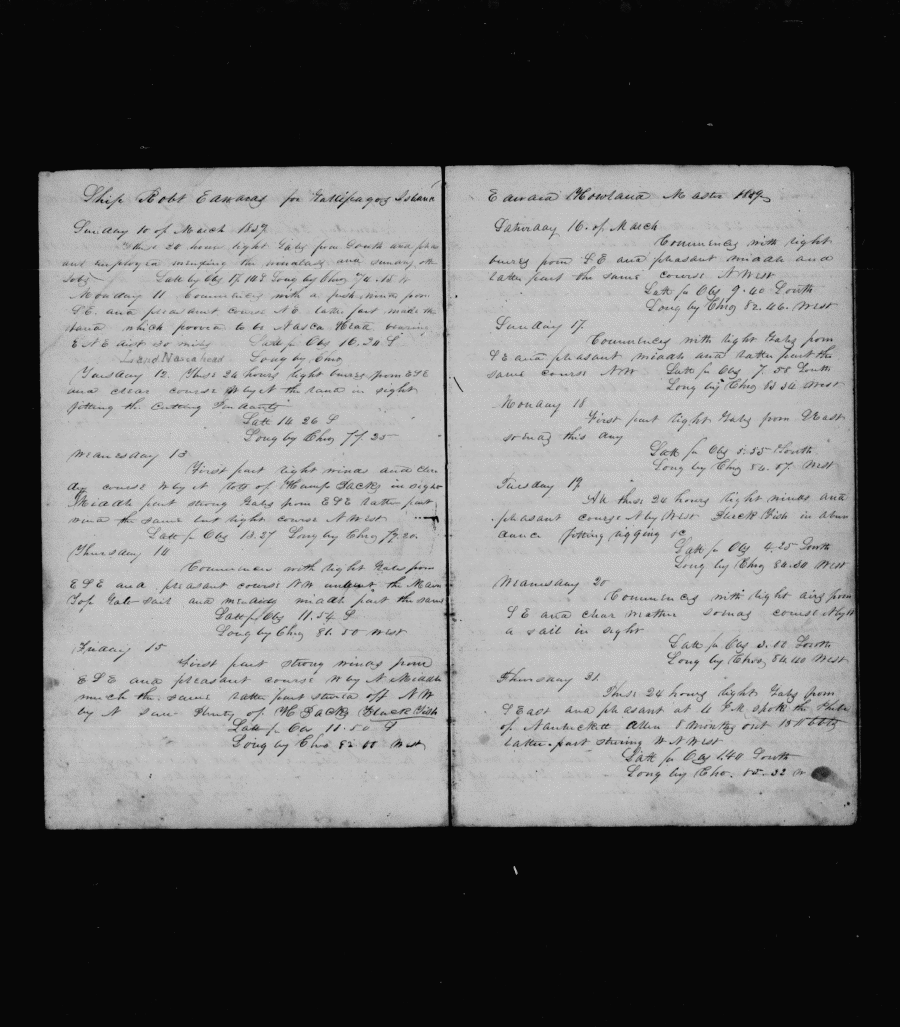 Ship Robt Edwards for Gallipagos Island
Sunday 10 of March 1839
These 24 hours light Gales from South and pleas
and employed mending the and sundry other
Jobs Latt by Obs 17.14 S Long by Chro 74.15 W
Monday 11 Commences with a fresh wind from
SE and pleasant course NW latter part made the
land which prooved to be Nasca Head bearing
ENE dist 30 miles Latt pr Obs 16.20 S
Land Nasca head Long by Chro
Tuesday 12. These 24 hours light breeze from ESE
and clear course W by N the land in sight
fitting the Cutting Pendants
Latt 14 26 S
Long by Chro 77.25
Wednesday 13
First part light winds and clou
dy course W by N lots of Hump Backs in sight
Middle part strong Gales from ESE latter part
wind the same but light course N West
Latt pr Obs 13.27 Long by Chro 79.20.
Thursday 14
Commences with light Gales from
ESE and pleasant course NW the Main
Top Gale sail and middle part the same
Latt pr Obs 11.54 S
Long by Chro 81.50 West
Friday 15
First part strong winds from
ESE and pleasant course W by N Middle
much the same latter part steered off NW
by N saw Plenty of H Backs Black Fish
Latt pr Obs 11.50 S
Long by Chro 82.00 West
Edward Howland Master 1839
Saturday 16. of March
Commences with light
breezes from SE and pleasant middle and
latter part the same course N West
Latt pr Obs 9.40 South
Long by Chro 82.46. West
Sunday 17.
Commences with light Gales from
SE and pleasant middle and latter part the
same course NW Latt pr Obs 7.58 South
Long by Chro 83.34 West
Monday 18
First part light Gales from SEast
this day
Latt pr Obs 5.55 South
Long by Chro 84.07 West
Tuesday 19
All these 24 hours light winds and
pleasant course N by West Black Fish in abun
dance fitting rigging &c
Latt pr Obs 4.25 South
Long by Chro 84.30 West
Wednesday 20
Commences with light airs from
SE and clear weather course N by W
a sail in sight
Latt pr Obs 3.10 South
Long by Chro. 84.40 West
Thursday 21.
These 24 hours light Gales from
SEast and pleasant at 4 P.M. spoke the
of Nantuckett Allen 8 Months out 150 bbls
latter part steering WNWest
Latt pr Obs 1.40 South
Long by Chro. 85.32 W